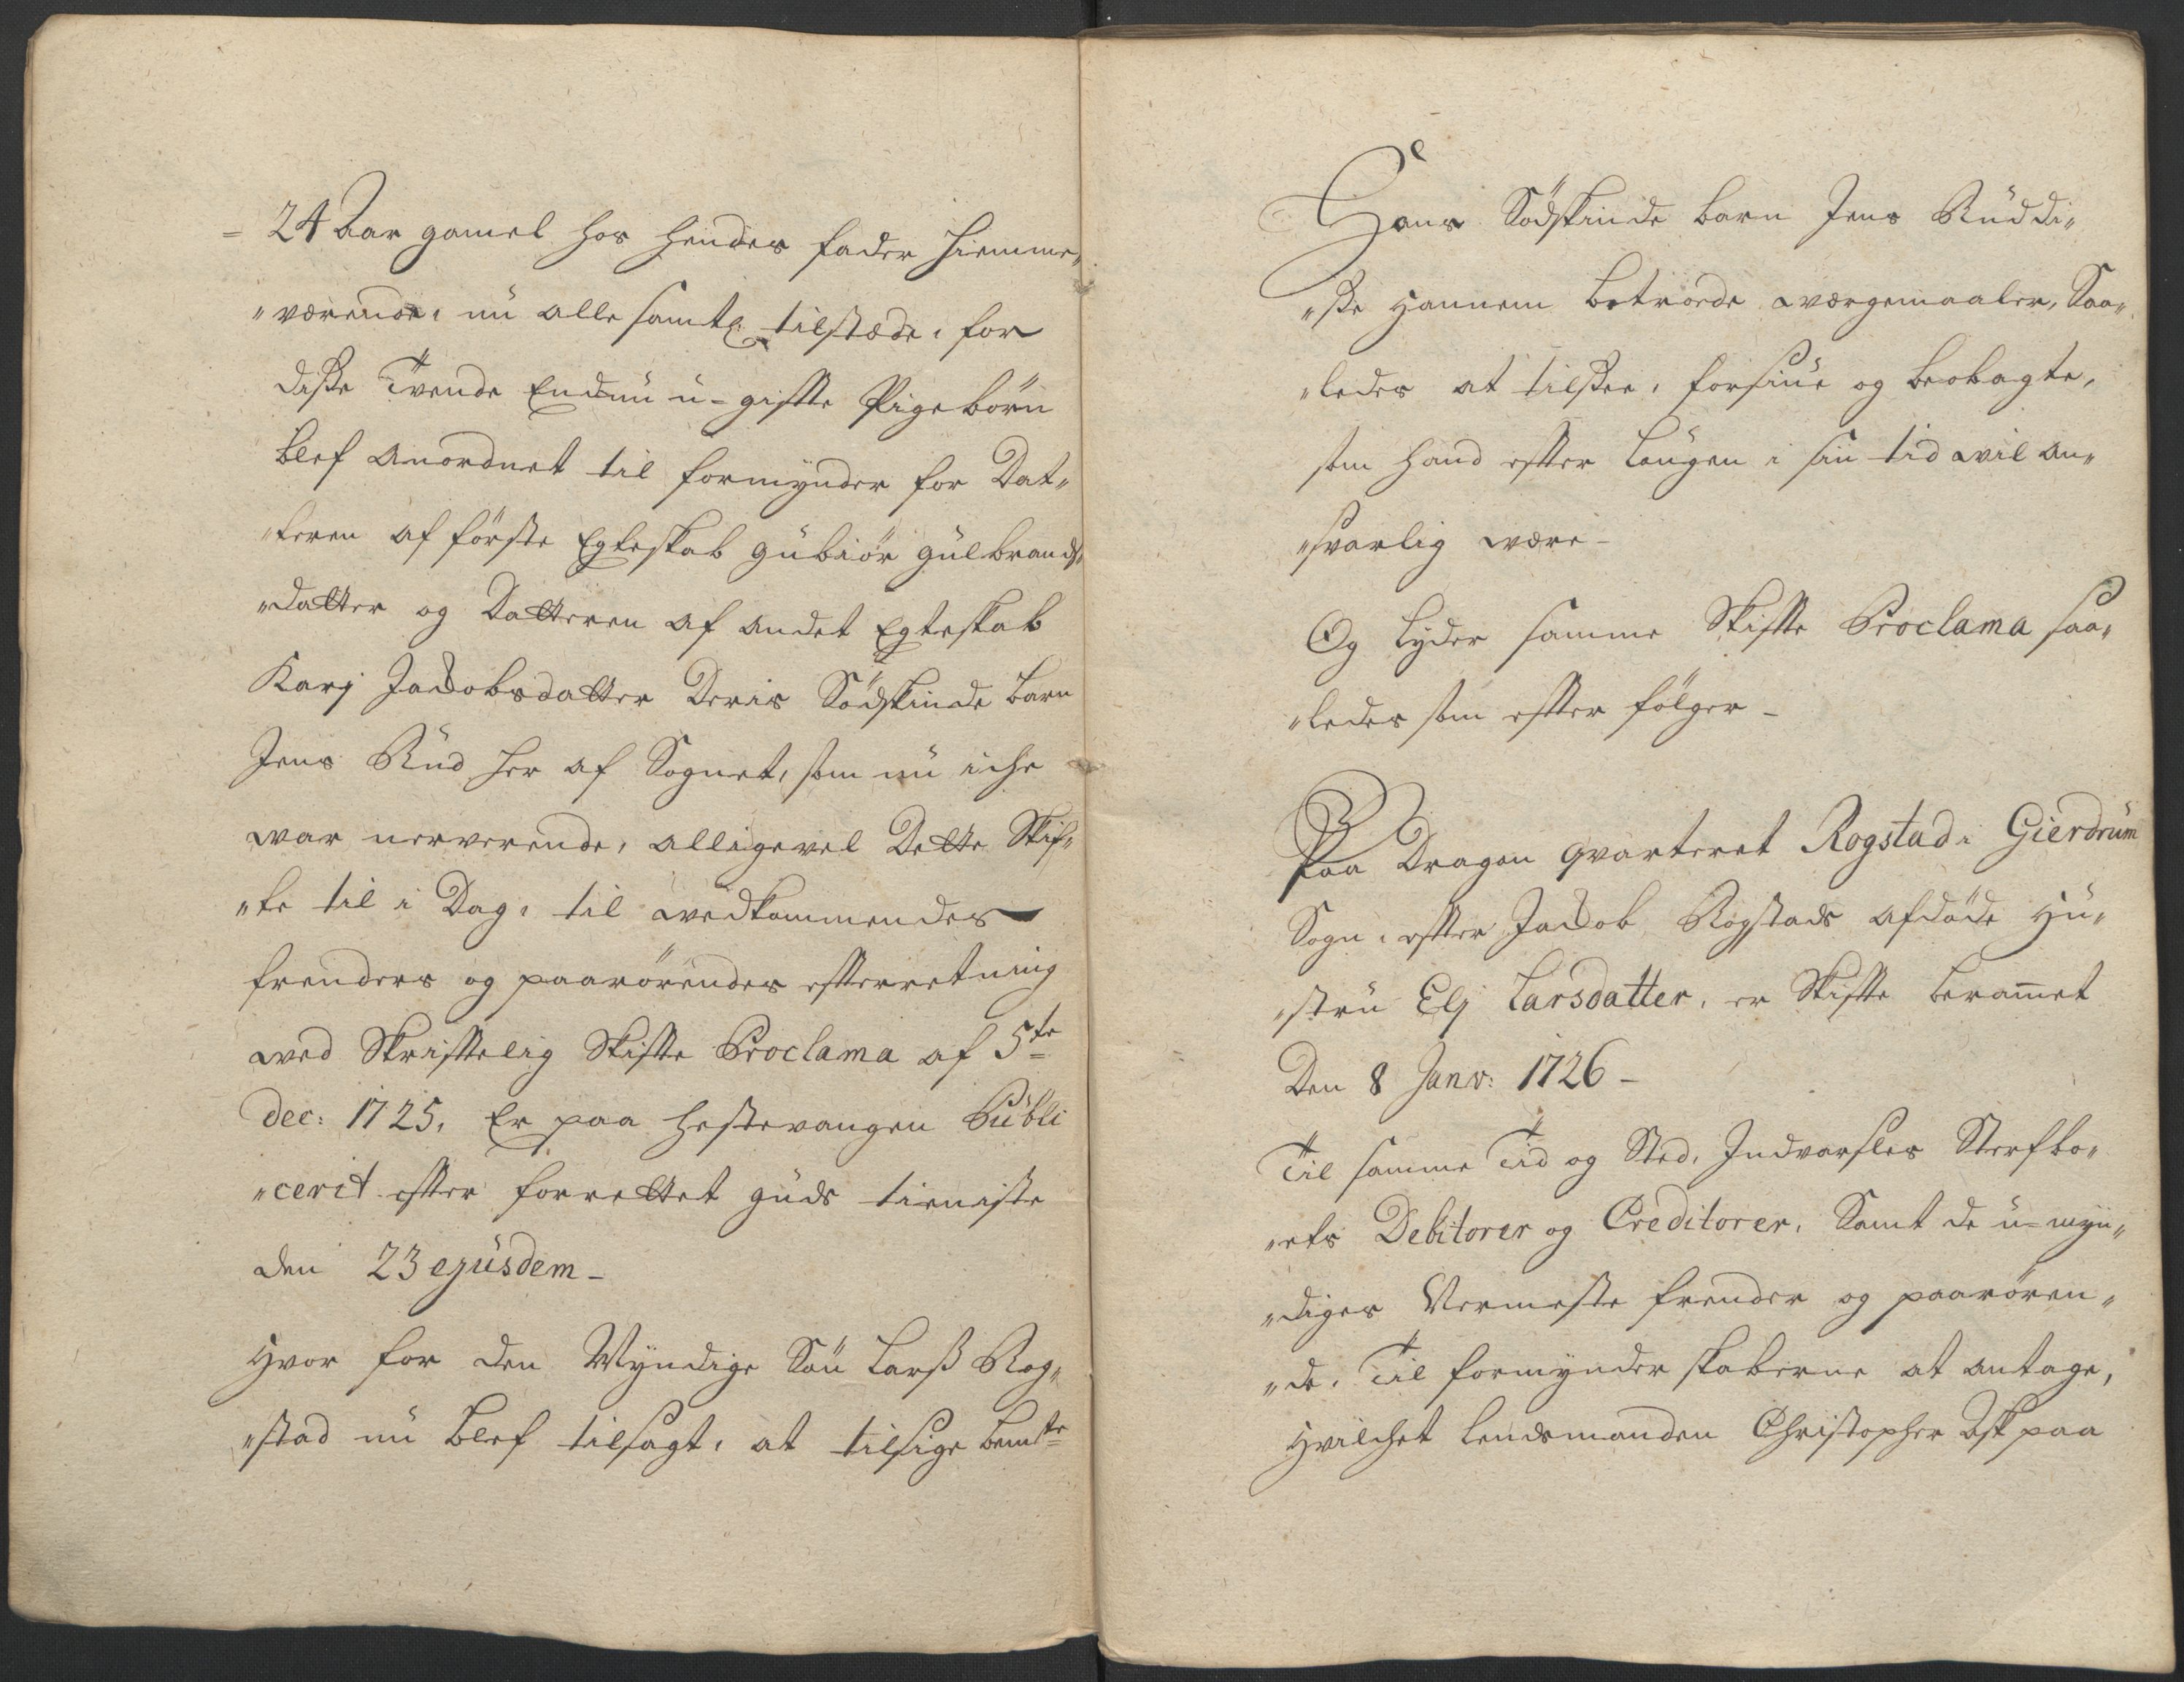 = 24 Aar gamel hos hendes fader hiemme„
„værende, nu alle samtl: tilstæde, for
disse Tvende Endnu u-gifte Pigebörn
blef anordnet til formynder for Dat„
„teren af förste Egteskab Gubiör Gulbrands„
„datter og Datteren af andet Egteskab
Karj Jacobsdatter Deris Södskinde barn
Jens Rud her af Sognet, som nu iche
war nerverende, alligevel Dette Skif„
„te til i Dag, til wedkommendes
frenders og paarörendes efterretning
wed Skriftelig Skifte Proclama af 5te
dec: 1725, Er paa hestevangen Publi
„cerit efter forrettet guds tieniste
den 23 ejusdem –
Hvor for den Myndige Sön Larss Rog„
„stad nu blef tilsagt, at tilsige bemte
Hans Södskinde barn Jens Rud di„
„sse hannem betroede wærgemaaler, Saa„
„ledes at tilssee, forsiune og beobagte,
som hand efter Laugen i sin tid wil an„
„svarlig være –
Og lyder samme Skifte Proclama saa„
„ledes som efter fölger –
Paa Dragon qvarteret Rogstad i Gierdrum
Sogn, efter Jacob Rogstads afdöde Hu„
„stru Elj Larsdatter, er Skifte beramet
Den 8 Janv: 1726 –
Til samme Tid og Sted, Indvarsles Sterfbo„
„ets Debitorer og Creditorer, Samt de u-myn„
„diges Nermeste frender og paarören„
„de, Til formynderskaberne at antage,
Hvilchet Lendsmanden Christopher Ask paa